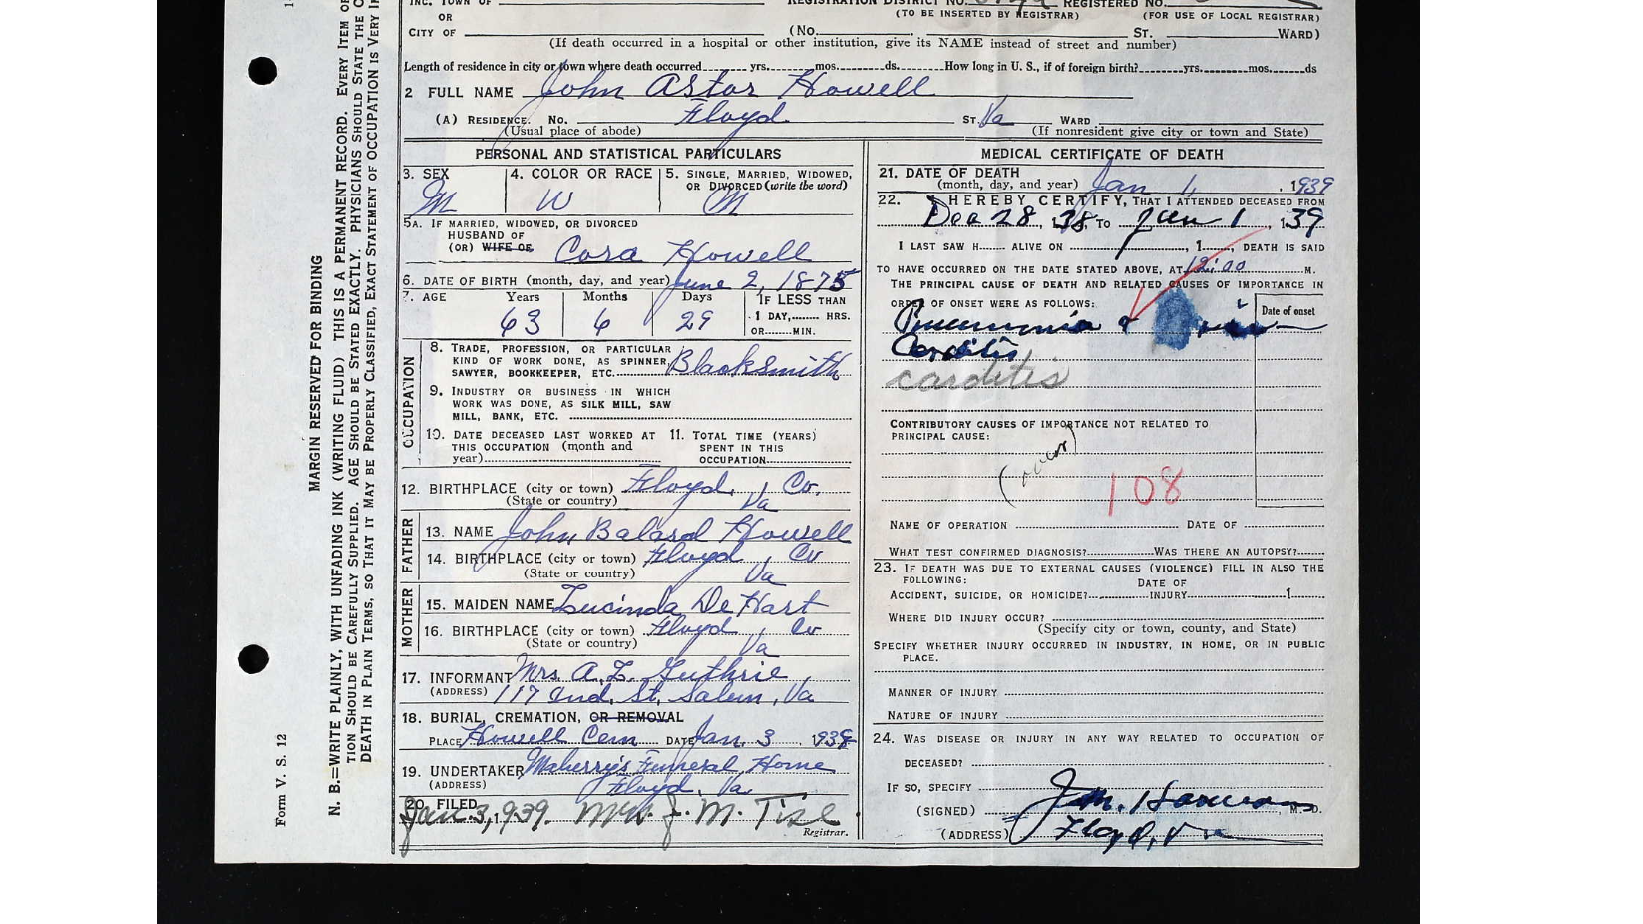 OR
(TO BE INSERTED BY REGISTRAR) (FOR USE OF LOCAL REGISTRAR)
CITY OF (No. St. WARD)
(If death occurred in a hospital or other institution, give its NAME instead of street and number)
Length of residence in city or town where death occurred yrs. mos. ds. How long in U. S., if of foreign birth? yrs. mos. ds
2 FULL NAME John Astor Howell
(A) RESIDENCE. No. Floyd ST. Va WARD
(Usual place of abode) (If nonresident give city or town and State)
PERSONAL AND STATISTICAL PARTICULARS
3. SEX 4. COLOR OR RACE 5. SINGLE, MARRIED, WIDOWED,
OR DIVORCED (write the word)
M W M
5A. IF MARRIED, WIDOWED, OR DIVORCED
HUSBAND OF
(OR) WIFE OF Cora Howell
6. DATE OF BIRTH (month, day, and year) June 2, 1875
7. AGE Years Months Days IF LESS THAN
1 DAY, HRS.
63 6 29 OR MIN.
OCCUPATION
8. TRADE, PROFESSION, OR PARTICULAR
KIND OF WORK DONE, AS SPINNER,
SAWYER, BOOKKEEPER, ETC. Blacksmith
9. INDUSTRY OR BUSINESS IN WHICH
WORK WAS DONE, AS SILK MILL, SAW
MILL, BANK, ETC.
10. DATE DECEASED LAST WORKED AT 11. TOTAL TIME (YEARS)
THIS OCCUPATION (month and SPENT IN THIS
year) OCCUPATION
12. BIRTHPLACE (city or town) Floyd, Co.
(State or country) Va
FATHER
13. NAME John Balard Howell
14. BIRTHPLACE (city or town) Floyd, Co
(State or country) Va
MOTHER
15. MAIDEN NAME Lucinda De Hart
16. BIRTHPLACE (city or town) Floyd, Co
(State or country) Va
17. INFORMANT Mrs. A. L. Guthrie
(ADDRESS) 117 2nd. St. Salem, Va
18. BURIAL, CREMATION, OR REMOVAL
PLACE Howell Cem DATE Jan. 3, 1939
19. UNDERTAKER Maberry's Funeral Home
(ADDRESS) Floyd, Va
20. FILED
Jan. 3, 1939. Mrs. J. M. Tise
Registrar.
MEDICAL CERTIFICATE OF DEATH
21. DATE OF DEATH
(month, day, and year) Jan 1, 1939
22. I HEREBY CERTIFY, THAT I ATTENDED DECEASED FROM
Dec 28, 1938, TO Jan 1, 1939
I LAST SAW H ALIVE ON , 1 , DEATH IS SAID
TO HAVE OCCURRED ON THE DATE STATED ABOVE, AT 12:00 M.
THE PRINCIPAL CAUSE OF DEATH AND RELATED CAUSES OF IMPORTANCE IN
ORDER OF ONSET WERE AS FOLLOWS: Date of onset
Pneumonia &
Carditis
carditis
CONTRIBUTORY CAUSES OF IMPORTANCE NOT RELATED TO
PRINCIPAL CAUSE:
108
NAME OF OPERATION DATE OF
WHAT TEST CONFIRMED DIAGNOSIS? WAS THERE AN AUTOPSY?
23. IF DEATH WAS DUE TO EXTERNAL CAUSES (VIOLENCE) FILL IN ALSO THE
FOLLOWING: DATE OF
ACCIDENT, SUICIDE, OR HOMICIDE? INJURY 1
WHERE DID INJURY OCCUR?
(Specify city or town, county, and State)
SPECIFY WHETHER INJURY OCCURRED IN INDUSTRY, IN HOME, OR IN PUBLIC
PLACE.
MANNER OF INJURY
NATURE OF INJURY
24. WAS DISEASE OR INJURY IN ANY WAY RELATED TO OCCUPATION OF
DECEASED?
IF SO, SPECIFY
(SIGNED) J. M. , M. D.
(ADDRESS) Floyd, Va
MARGIN RESERVED FOR BINDING
N. B.=WRITE PLAINLY, WITH UNFADING INK (WRITING FLUID) THIS IS A PERMANENT RECORD. EVERY ITEM OF
TION SHOULD BE CAREFULLY SUPPLIED. AGE SHOULD BE STATED EXACTLY. PHYSICIANS SHOULD STATE THE
DEATH IN PLAIN TERMS, SO THAT IT MAY BE PROPERLY CLASSIFIED, EXACT STATEMENT OF OCCUPATION IS VERY
Form V. S. 12